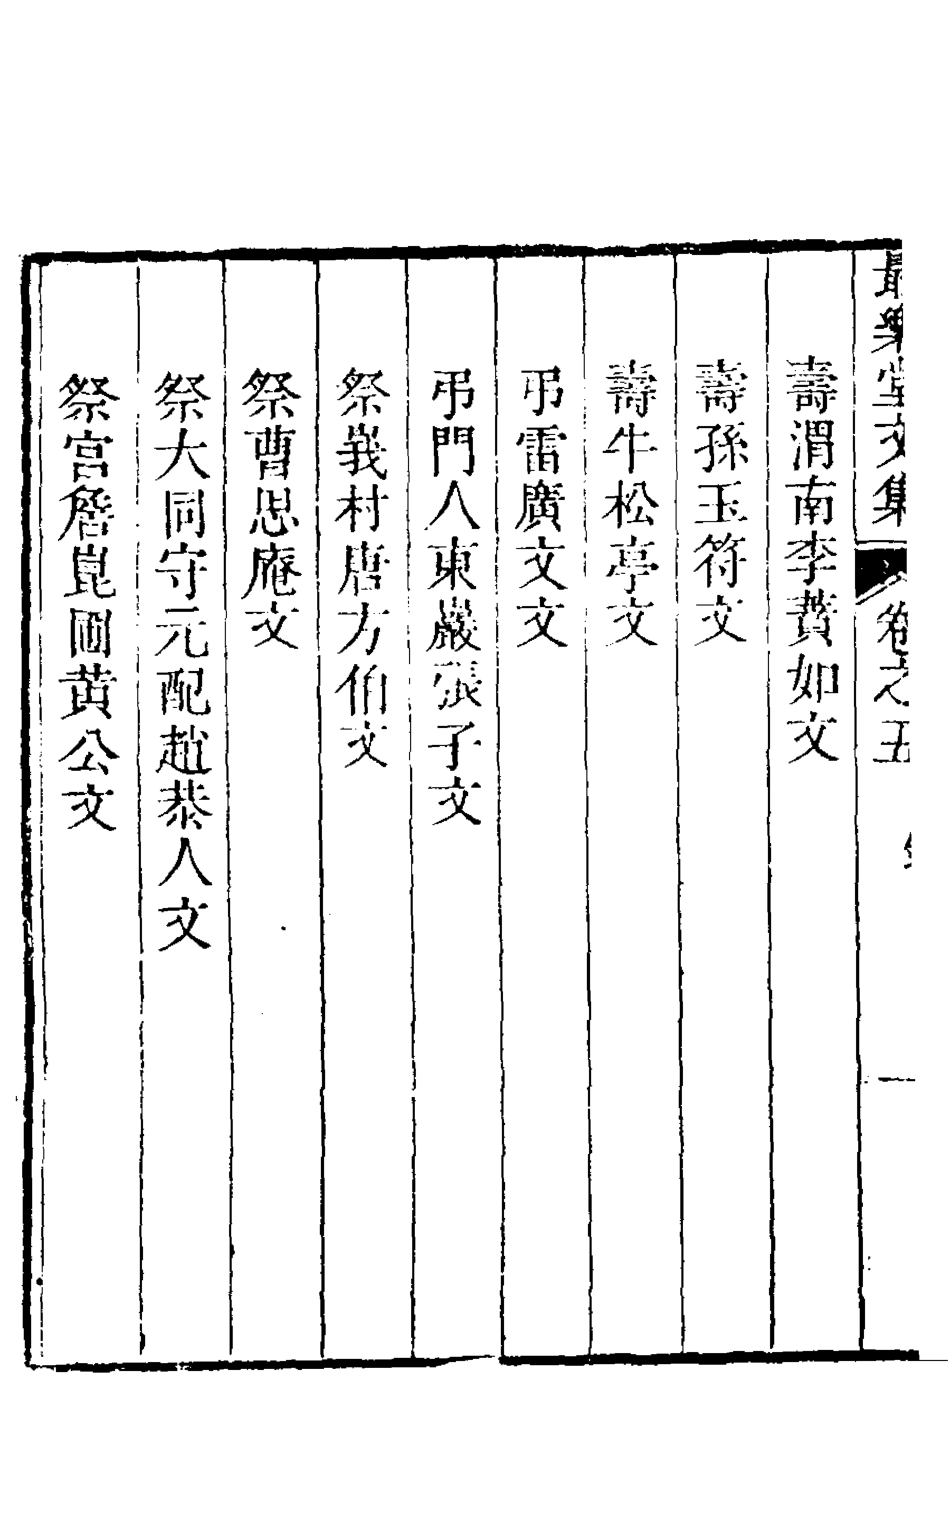 最樂堂文集 卷之五
壽渭南李蕡如文
壽孫玉符文
壽牛松亭文
弔雷廣文文
弔門人東巖張子文
祭峩村唐方伯文
祭曹思庵文
祭大同守元配趙恭人文
祭宮詹崑圃黄公文